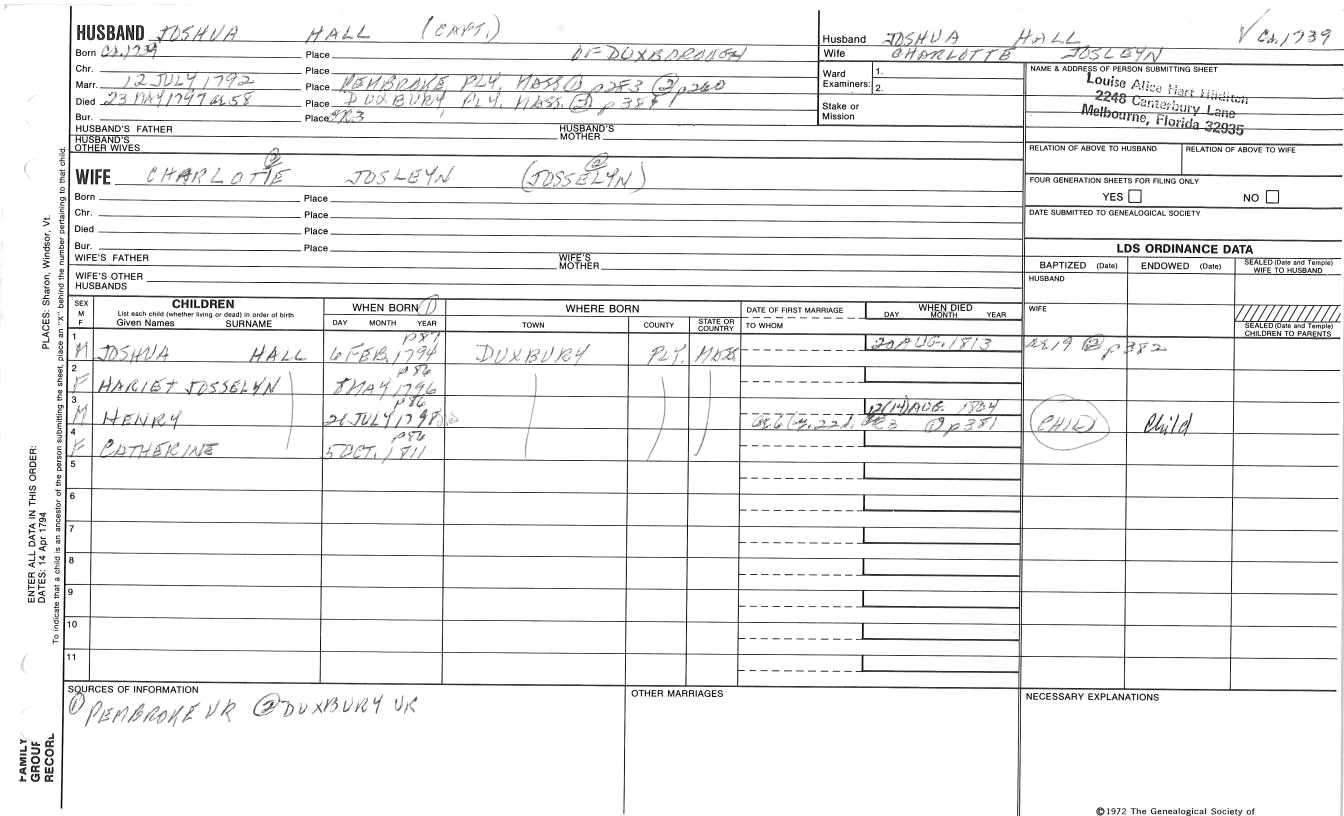 HUSBAND JOSHUA HALL (CAPT.)
Born Ca.1739 Place OF DUXBOROUGH
Chr. Place
Marr. 12 JULY 1792 Place PEMBROKE, PLY. MASS ① p283 ② p260
Died 23 MAY 1797 ae.58 Place DUXBURY PLY. MASS. ② p381
Bur. Place
HUSBAND'S FATHER HUSBAND'S MOTHER
HUSBAND'S OTHER WIVES
② ②
WIFE CHARLOTTE JOSLEYN (JOSSELYN)
Born Place
Chr. Place
Died Place
Bur. Place
WIFE'S FATHER WIFE'S MOTHER
WIFE'S OTHER HUSBANDS
Husband JOSHUA HALL √ Ca.1739
Wife CHARLOTTE JOSLEYN
Ward Examiners: 1.
2.
Stake or Mission
NAME & ADDRESS OF PERSON SUBMITTING SHEET
Louise Alice Hart Hilditch
2248 Canterbury Lane
Melbourne, Florida 32935
RELATION OF ABOVE TO HUSBAND RELATION OF ABOVE TO WIFE
FOUR GENERATION SHEETS FOR FILING ONLY
YES NO
DATE SUBMITTED TO GENEALOGICAL SOCIETY
LDS ORDINANCE DATA
BAPTIZED (Date) ENDOWED (Date) SEALED (Date and Temple) WIFE TO HUSBAND
HUSBAND
WIFE
SEALED (Date and Temple) CHILDREN TO PARENTS
SEX M F
CHILDREN
List each child (whether living or dead) in order of birth
Given Names SURNAME
WHEN BORN ①
DAY MONTH YEAR
WHERE BORN
TOWN COUNTY STATE OR COUNTRY
DATE OF FIRST MARRIAGE
TO WHOM
WHEN DIED
DAY MONTH YEAR
p87
1 M JOSHUA HALL 6 FEB. 1794 DUXBURY PLY. MASS 20 AUG. 1813 ae.19 ② p382
p86
2 F HARIET JOSSELYN 8 MAY 1796
p86
3 M HENRY 21 JULY 1798 12(14) AUG. 1804 ② p381 CHILD Child
p86
4 F CATHERINE 5 OCT. 1811
5
6
7
8
9
10
11
SOURCES OF INFORMATION
① PEMBROKE VR ② DUXBURY VR
OTHER MARRIAGES
NECESSARY EXPLANATIONS
©1972 The Genealogical Society of
FAMILY GROUP RECORD
ENTER ALL DATA IN THIS ORDER:
DATES: 14 Apr 1794 PLACES: Sharon, Windsor, Vt.
To indicate that a child is an ancestor of the person submitting the sheet, place an "X" behind the number pertaining to that child.